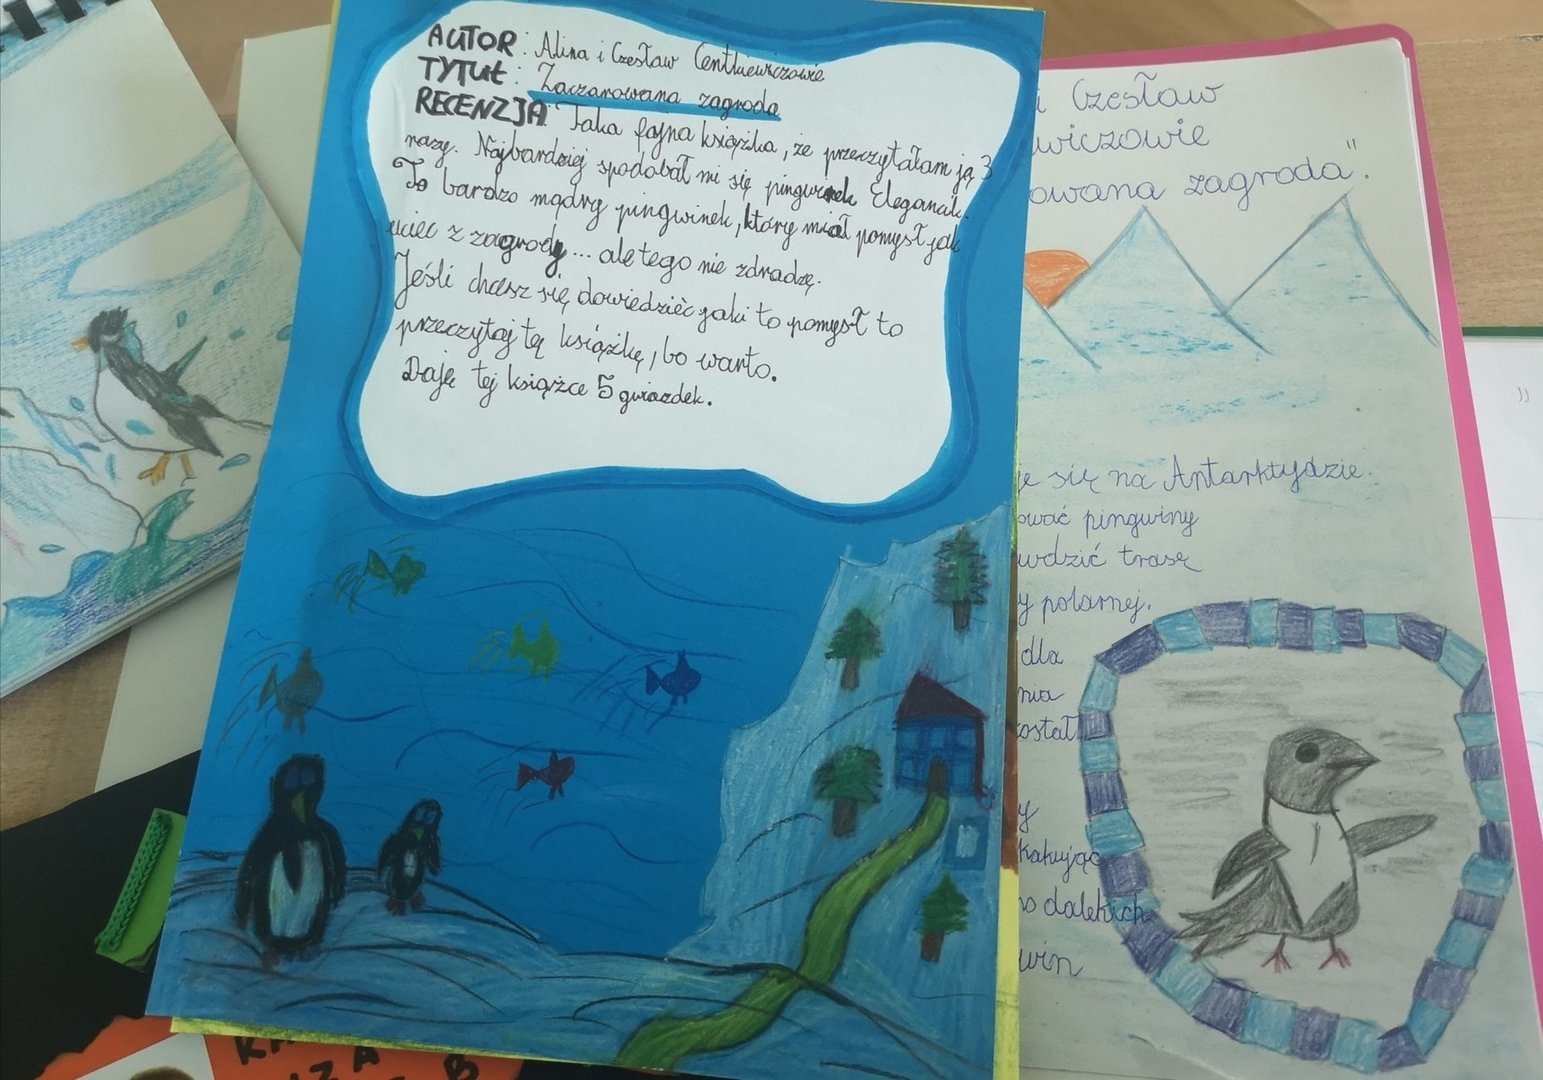 AUTOR: Alina i Czesław Centkiewiczowie
TYTUŁ: Zaczarowana zagroda
RECENZJA: Taka fajna książka, że przeczytałam ją 3
razy. Najbardziej spodobał mi się pingwinek Elegancik.
To bardzo mądry pingwinek, który miał pomysł jak
uciec z zagrody... ale tego nie zdradzę.
Jeśli chcesz się dowiedzieć jaki to pomysł to
przeczytaj tę książkę, bo warto.
Daję tej książce 5 gwiazdek.
i Czesław
wiczowie
owana zagroda".
je się na Antarktydzie.
ować pingwiny
wdzić trasę
y polarnej.
dla
nia
został
y
kakując
o dalekich
win